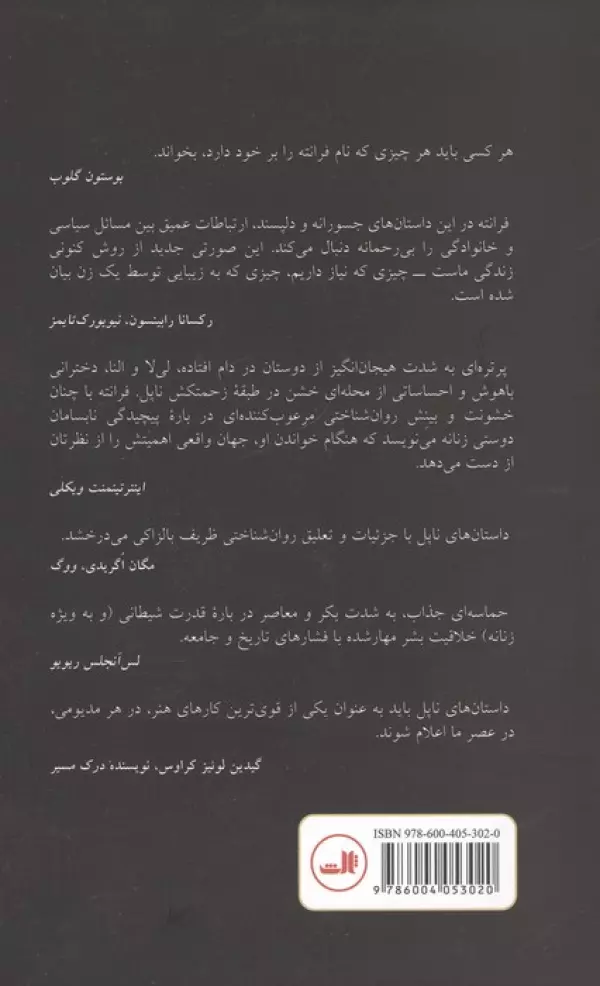 هر کسی باید هر چیزی که نام فرانته را بر خود دارد، بخواند.
بوستون گلوب
فرانته در این داستان‌های جسورانه و دلپسند، ارتباطات عمیق بین مسائل سیاسی
و خانوادگی را بی‌رحمانه دنبال می‌کند. این صورتی جدید از روش کنونی
زندگی ماست ــ چیزی که نیاز داریم، چیزی که به زیبایی توسط یک زن بیان
شده است.
رکسانا رابینسون، نیویورک‌تایمز
پرتره‌ای به شدت هیجان‌انگیز از دوستان در دام افتاده، لی‌لا و النا، دخترانی
باهوش و احساساتی از محله‌ای خشن در طبقهٔ زحمتکش ناپل. فرانته با چنان
خشونت و بینِش روان‌شناختی مرعوب‌کننده‌ای در بارهٔ پیچیدگی نابسامان
دوستی زنانه می‌نویسد که هنگام خواندن او، جهان واقعی اهمیتش را از نظرتان
از دست می‌دهد.
اینترتینمنت ویکلی
داستان‌های ناپل با جزئیات و تعلیق روان‌شناختی ظریف بالزاکی می‌درخشد.
مگان اُگریدی، ووگ
حماسه‌ای جذاب، به شدت بکر و معاصر در بارهٔ قدرت شیطانی (و به ویژه
زنانه) خلاقیت بشر مهارشده با فشارهای تاریخ و جامعه.
لس‌آنجلس ریویو
داستان‌های ناپل باید به عنوان یکی از قوی‌ترین کارهای هنر، در هر مدیومی،
در عصر ما اعلام شوند.
گیدین لوئیز کراوس، نویسندهٔ درک مسیر
ISBN 978-600-405-302-0
ثالث
9 786004 053020